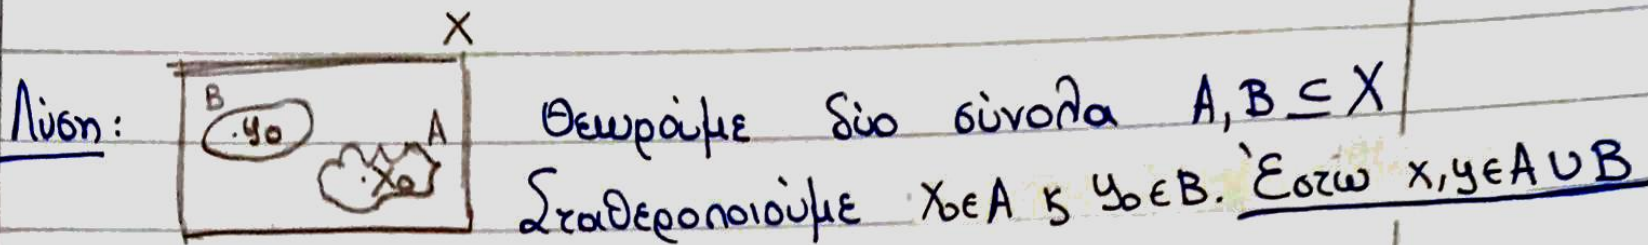 X
Λύση: B .y₀ A .x₀ Θεωρούμε δύο σύνολα A, B ⊆ X
Σταθεροποιούμε x₀∈A ϗ y₀∈B. Έστω x,y∈A∪B